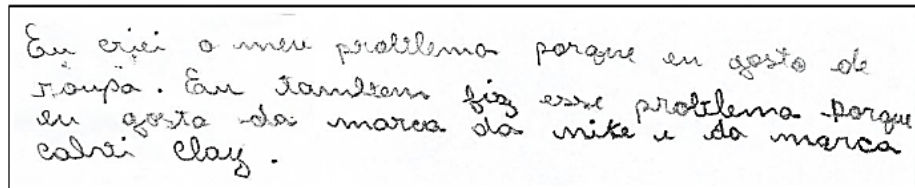 Eu criei o meu problema porque eu gosto de
roupa. Eu tambem fiz esse problema porque
eu gosto da marca da nike e da marca
calvi clay.